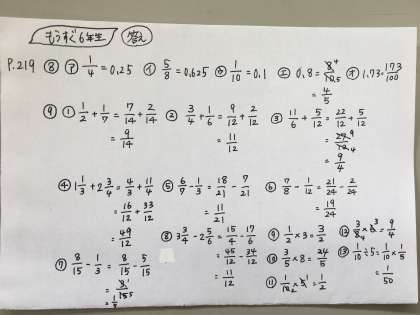 もうすぐ6年生 答え
P.219 ⑧ ㋐ 1/4 = 0.25 ㋑ 5/8 = 0.625 ㋒ 1/10 = 0.1 ㋓ 0.8 = 8/10 = 4/5 ㋔ 1.73 = 173/100
⑨ ① 1/2 + 1/7 = 7/14 + 2/14 = 9/14
② 3/4 + 1/6 = 9/12 + 2/12 = 11/12
③ 11/6 + 5/12 = 22/12 + 5/12 = 27/12 = 9/4
④ 1 1/3 + 2 3/4 = 4/3 + 11/4 = 16/12 + 33/12 = 49/12
⑤ 6/7 - 1/3 = 18/21 - 7/21 = 11/21
⑥ 7/8 - 1/12 = 21/24 - 2/24 = 19/24
⑦ 8/15 - 1/3 = 8/15 - 5/15 = 3/15 = 1/5
⑧ 3 3/4 - 2 5/6 = 15/4 - 17/6 = 45/12 - 34/12 = 11/12
⑨ 1/2 × 3 = 3/2
⑩ 3/5 × 8 = 24/5
⑪ 1/10 × 5 = 1/2
⑫ 3/8 × 6 = 9/4
⑬ 1/10 ÷ 5 = 1/10 × 1/5 = 1/50